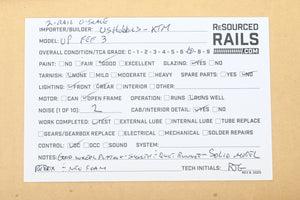 2-RAIL O-SCALE
IMPORTER/BUILDER: US Hobbies - KTM
MODEL: UP FEF 3
RESOURCED RAILS.COM
OVERALL CONDITION/TCA GRADE: C-1-2-3-4-5-6-7-8-9
PAINT: NO FAIR GOOD EXCELLENT GLAZING: YES NO
TARNISH: NONE MILD MODERATE HEAVY SPARE PARTS: YES NO
LIGHTING: FRONT REAR INTERIOR OTHER:
MOTOR: CAN OPEN FRAME OPERATION: RUNS RUNS WELL
NOISE (1 OF 10): 2 CAB/INTERIOR DETAIL: YES NO
WORK COMPLETED: TEST EXTERNAL LUBE INTERNAL LUBE TUBE REPLACE
GEARS/GEARBOX REPLACE ELECTRICAL MECHANICAL SOLDER REPAIRS
CONTROL: DC DCC SOUND SYSTEM:
NOTES: SOLID MODEL
NEW FOAM TECH INITIALS: